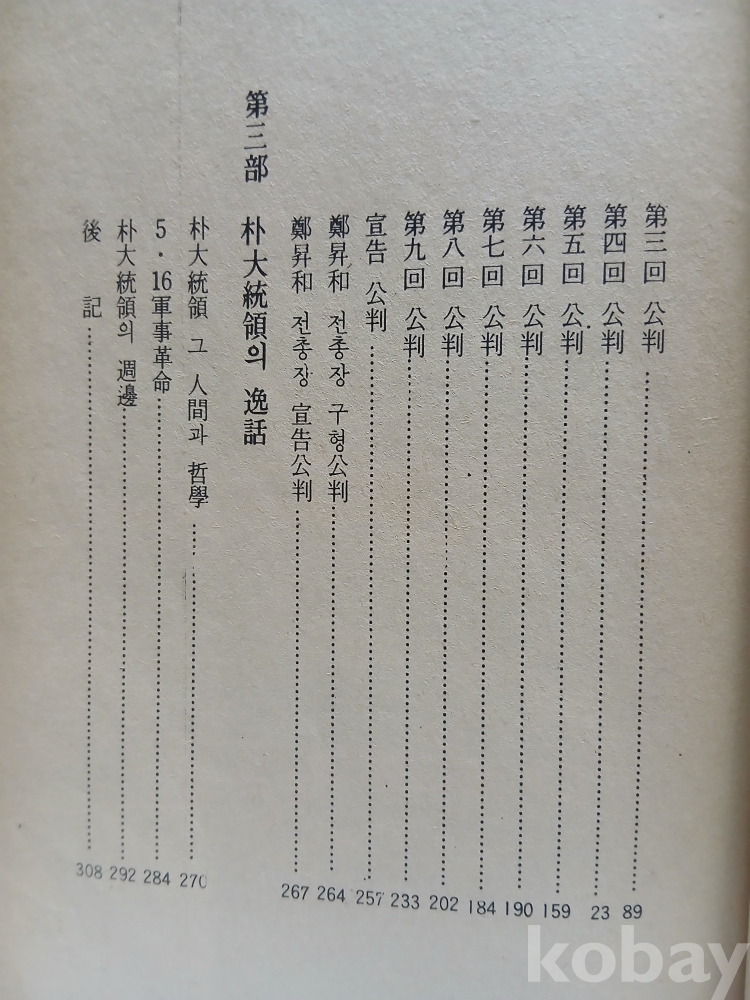 第三回 公判 89
第四回 公判 23
第五回 公判 159
第六回 公判 190
第七回 公判 184
第八回 公判 202
第九回 公判 233
宣告 公判 257
鄭昇和 전총장 구형公判 264
鄭昇和 전총장 宣告公判 267
第三部 朴大統領의 逸話
朴大統領 그 人間과 哲學 270
5·16軍事革命 284
朴大統領의 週邊 292
後記 308
kobay